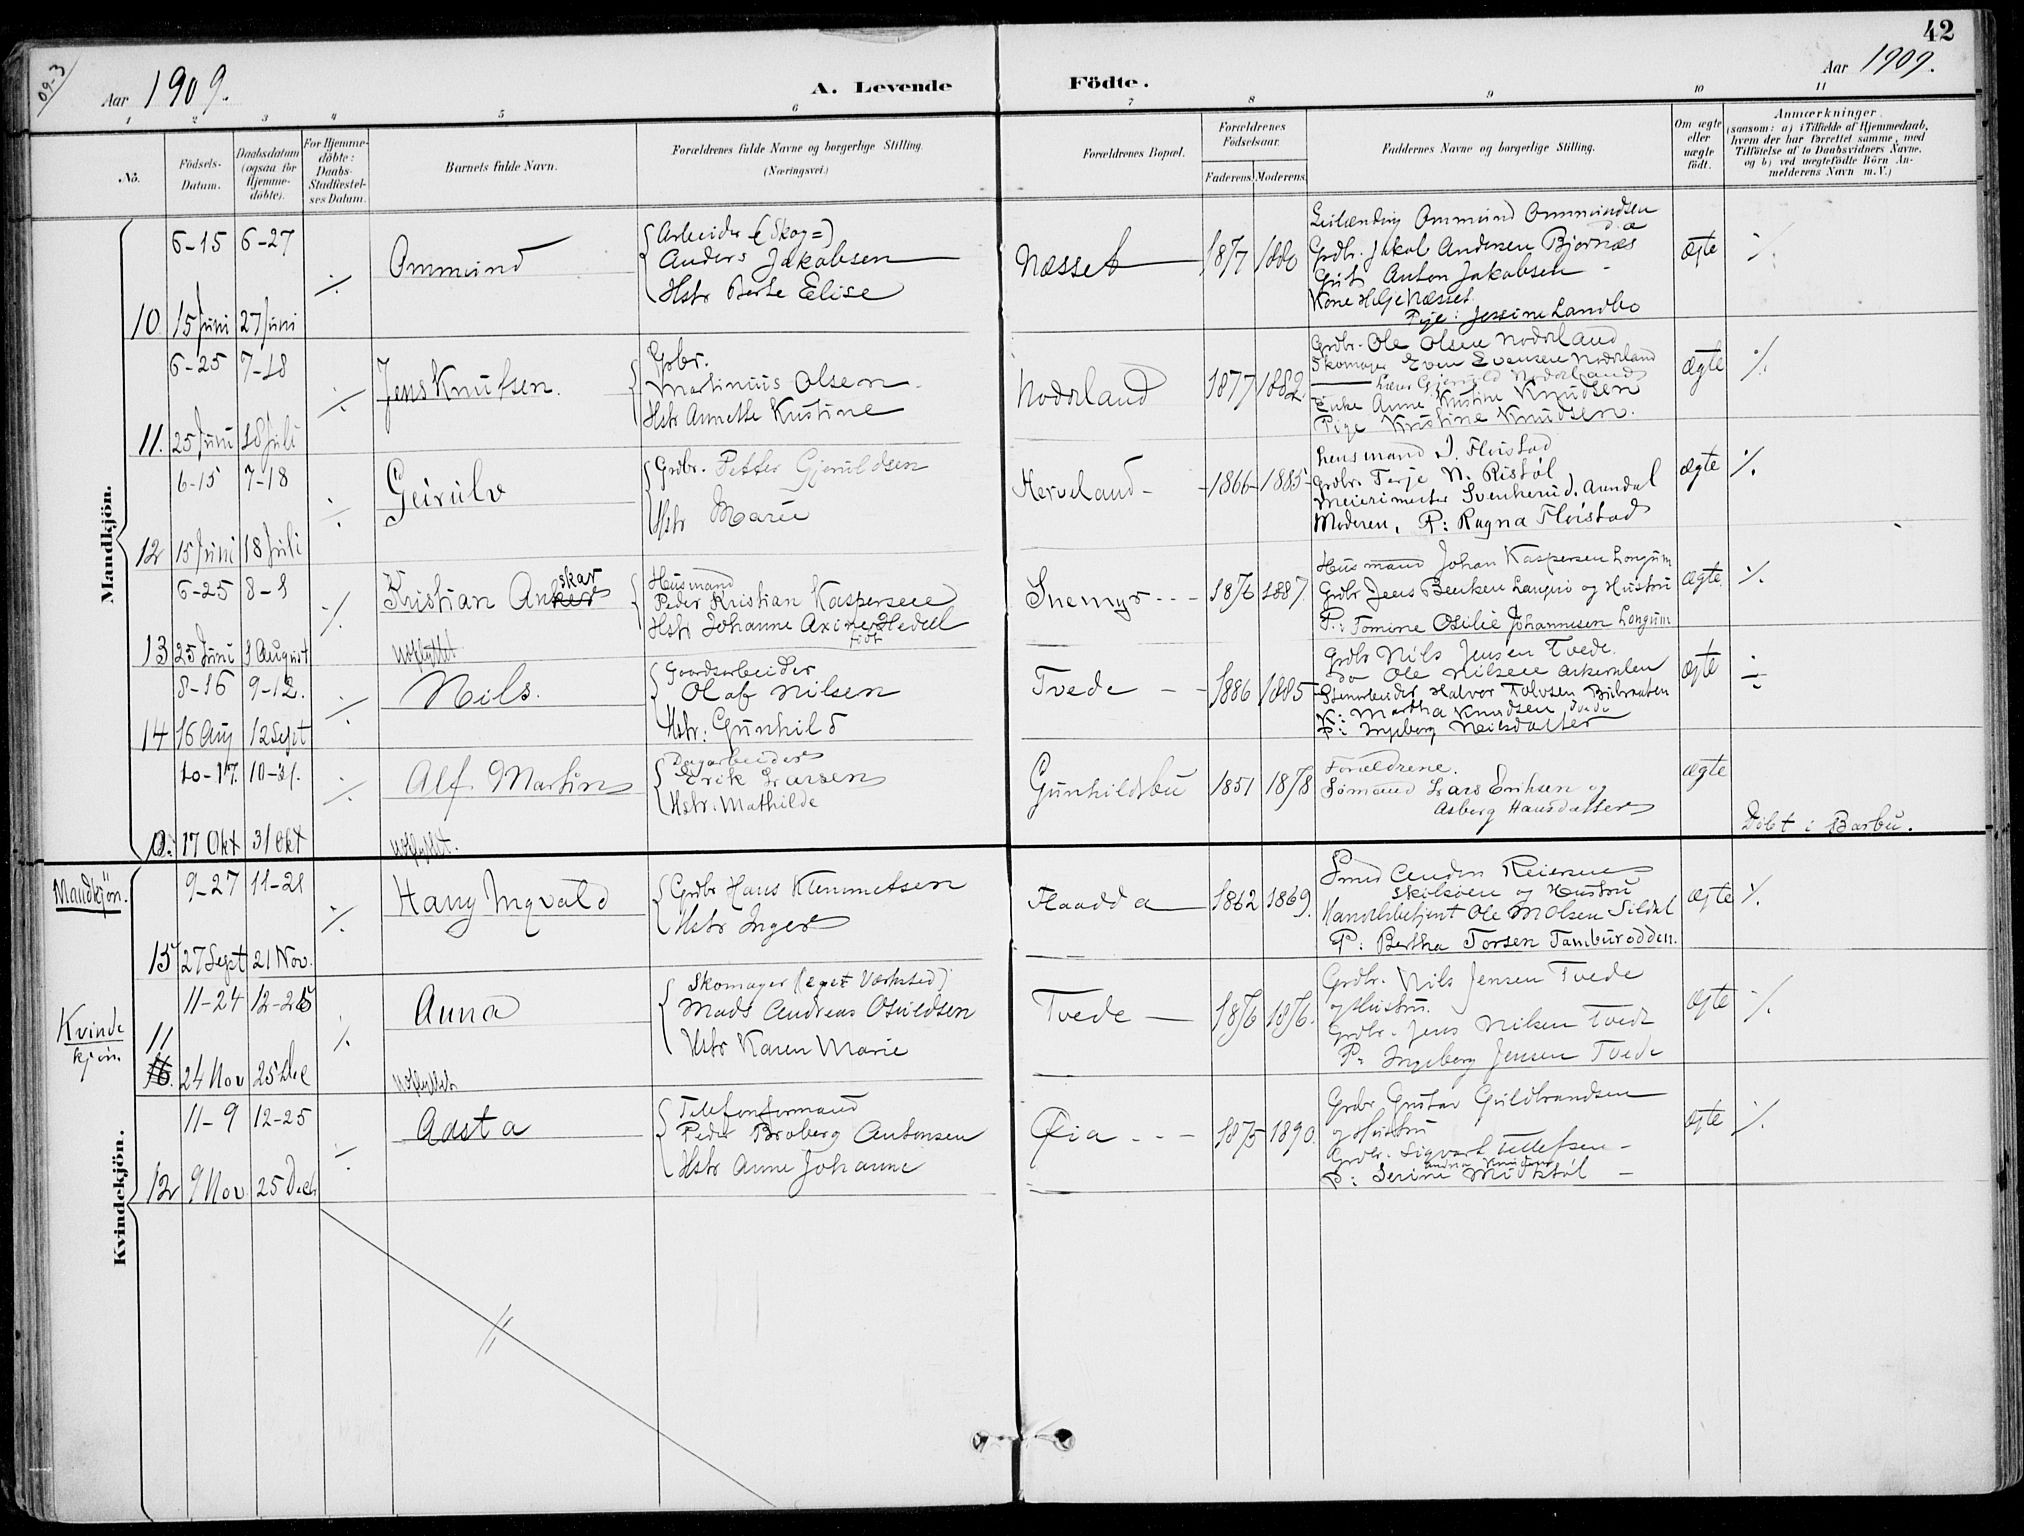 09-3
Aar 1909.
A. Levende
Födte.
Aar 1909.
42
1 2 3 4 5 6 7 8 9 10 11
No.
Födsels-
Datum.
Daabsdatum
(ogsaa for
Hjemme-
döbte).
For Hjemme-
döbte:
Daabs-
Stadfæstel-
ses Datum.
Barnets fulde Navn.
Forældrenes fulde Navne og borgerlige Stilling.
(Næringsvei.)
Forældrenes Bopæl.
Forældrenes
Födselsaar.
Faderens.
Moderens.
Faddernes Navne og borgerlige Stilling.
Om ægte
eller
uægte
födt.
Anmærkninger.
(saasom: a) i Tilfælde af Hjemmedaab,
hvem der har forrettet samme, med
Tilföielse af to Daabsvidners Navne,
og b) ved uegtefödte Börn An-
melderens Navn m.V.)
Mandkjön.
6-15 6-27
10 15 Juni 27 Juni
Ommund
Arbeider (Skog=)
Anders Jakobsen
Hstr Berte Elise
Næsset
1877 1880
Ommund Ommundsen
Grdbr. Jakob Andersen Bjornæs
Anton Jakobsen
Kone Helje Næsset
Pige: Jessine Landbo
ægte
6-25 7-18
11. 25 Juni 18 Juli
Jens Knutsen.
Grbr.
Martinius Olsen
Hstr Annette Kristine
Nodeland
1877 1882.
Grdbr. Ole Olsen Nodeland
Skomager Even Evensen Nodeland
Enke Anne Kristine Knudsen
Pige Kristine Knudsen.
ægte
6-15 7-18
12 15 Juni 18 Juli
Geirulv
Grdbr. Petter Gjeruldsen
Hstr Marie
Herveland
1866 1885
Lensmand J. Fløistad
Grdbr. Terje N. Ristøl
Meierimester Svenkerud. Arendal
Moderen, P: Ragna Fløistad
ægte
6-25 8-1
13 25 Juni 1 August
Kristian Anker
skar
Udflyttet
Husmand
Peder Kristian Kaspersen
Hstr Johanne Axine Hedell
født
Snemyr
1876 1887.
Husmand Johan Kaspersen Longum
Grdbr Jens Benken Langsø og Hustru
P.: Tomine Otilie Johannesen Longum
ægte
8-16 9-12.
14 16 Aug 12 Sept
Nils.
Gaardsarbeider
Olaf Nilsen
Hstr: Gunhild
Tvede
1886 1885
Grdbr Nils Jensen Tvede.
do Ole Nilsen
Stenarbeider Halvor Tolvsen
K: Martha Knudsen Tvede
P: Ingeborg Nilsdatter
ægte
10-17. 10-31.
a. 17 Okt 31 Okt
Alf Martin
Udflyttet.
Dagarbeider
Erik Larsen
Hstr: Mathilde
Gunhildsbu
1851 1878
Forældrene.
Sømand Lars Eriksen og
Asberg Hansdatter
ægte
Døbt i Barbu.
Mandkjön.
9-27 11-21
15 27 Sept 21 Nov.
Hans Ingvald
Grdbr Hans Klemmetsen
Hstr Inger
Flaadda
1862 1869.
Smed Anders Reiersen
og Hustru
Handelsbetjent Ole M Olsen Sildal
P: Bertha Torsen Tamburodden.
ægte
Kvinde
kjøn.
11-24 12-25
11
16. 24 Nov 25 Dec
Anna
Udflyttet
Skomager (eget Værksted)
Mads Andreas Osuldsen
Hstr Karen Marie
Tvede
1876 1876.
Grdbr. Nils Jensen Tvede
og Hustru.
Grdbr. Jens Nilsen Tvede
P: Ingeborg Jensen Tvede
ægte
Kvindekjön.
11-9 12-25
12 9 Nov 25 Decb
Aasta
Telefonformand
Peder Broberg Antonsen
Hstr Anne Johanne
Øia
1875 1890.
Grdbr Gustav Guldbrandsen
og Hustru
Grdbr. Sigvart Tellefsen
P: Serine Midtstøl
ægte